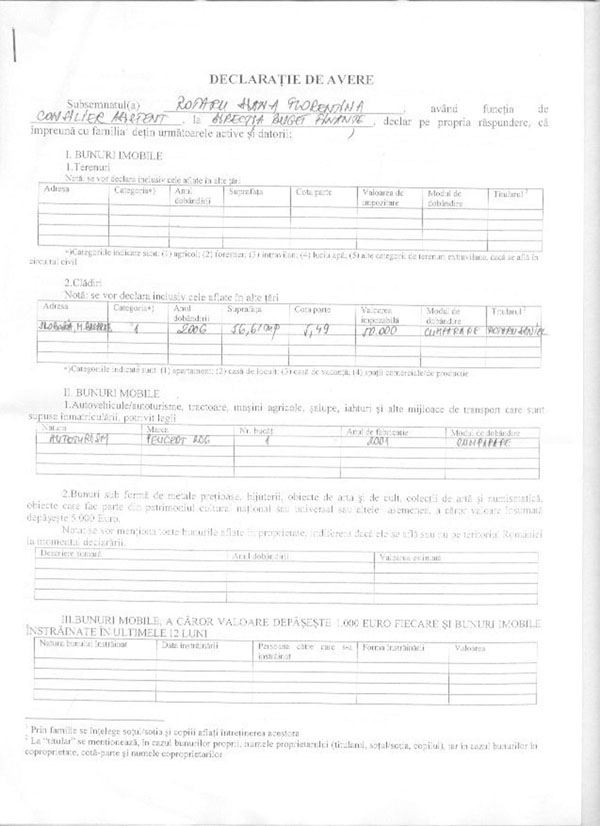 DECLARAȚIE DE AVERE
Subsemnatul(a) ROTARU FLORENTINA, având funcția de
CONSILIER ASISTENT, la DIRECȚIA BUGET FINANȚE, declar pe propria răspundere, că
împreună cu familia¹ dețin următoarele active și datorii:
I. BUNURI IMOBILE
1.Terenuri
Notă: se vor declara inclusiv cele aflate în alte țări
Adresa Categoria*) Anul dobândirii Suprafața Cota parte Valoarea de impozitare Modul de dobândire Titularul²
*)Categoriile indicate sunt: (1) agricol; (2) forestier; (3) intravilan; (4) luciu apă; (5) alte categorii de terenuri extravilane, dacă se află în
circuitul civil
2.Clădiri
Notă: se vor declara inclusiv cele aflate în alte țări
Adresa Categoria*) Anul dobândirii Suprafața Cota parte Valoarea impozabilă Modul de dobândire Titularul²
1 2006 56,61mp 50.000 CUMPARARE
*)Categoriile indicate sunt: (1) apartament; (2) casă de locuit; (3) casă de vacanță; (4) spații comerciale/de producție
II. BUNURI MOBILE
1.Autovehicule/autoturisme, tractoare, mașini agricole, șalupe, iahturi și alte mijloace de transport care sunt
supuse înmatriculării, potrivit legii
Natura Marca Nr. bucăți Anul de fabricație Modul de dobândire
AUTOTURISM PEUGEOT 206 1 2001 CUMPARARE
2.Bunuri sub formă de metale prețioase, bijuterii, obiecte de artă și de cult, colecții de artă și numismatică,
obiecte care fac parte din patrimoniul cultural național sau universal sau altele asemenea, a căror valoare însumată
depășește 5.000 Euro.
Notă: se vor menționa toate bunurile aflate în proprietate, indiferent dacă ele se află sau nu pe teritoriul României
la momentul declarării.
Descriere sumară Anul dobândirii Valoarea estimată
III.BUNURI MOBILE, A CĂROR VALOARE DEPĂȘEȘTE 1.000 EURO FIECARE ȘI BUNURI IMOBILE
ÎNSTRĂINATE ÎN ULTIMELE 12 LUNI
Natura bunului înstrăinat Data înstrăinării Persoana către care s-a înstrăinat Forma înstrăinării Valoarea
¹ Prin familie se înțelege soțul/soția și copiii aflați în întreținerea acestora
² La "titular" se menționează, în cazul bunurilor proprii, numele proprietarului (titularul, soțul/soția, copilul), iar în cazul bunurilor în
coproprietate, cota-parte și numele coproprietarilor